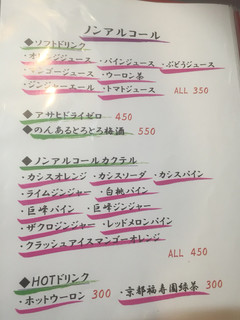 ノンアルコール
◆ソフトドリンク
・オレンジジュース ・パインジュース ・ぶどうジュース
・マンゴージュース ・ウーロン茶
・ジンジャーエール ・トマトジュース ALL 350
◆アサヒドライゼロ 450
◆のんあるとろとろ梅酒 550
◆ノンアルコールカクテル
・カシスオレンジ ・カシスソーダ ・カシスパイン
・ライムジンジャー ・白桃パイン
・巨峰パイン ・巨峰ジンジャー
・ザクロジンジャー ・レッドメロンパイン
・クラッシュアイスマンゴーオレンジ
ALL 450
◆HOTドリンク
・ホットウーロン 300 ・京都福寿園緑茶 300